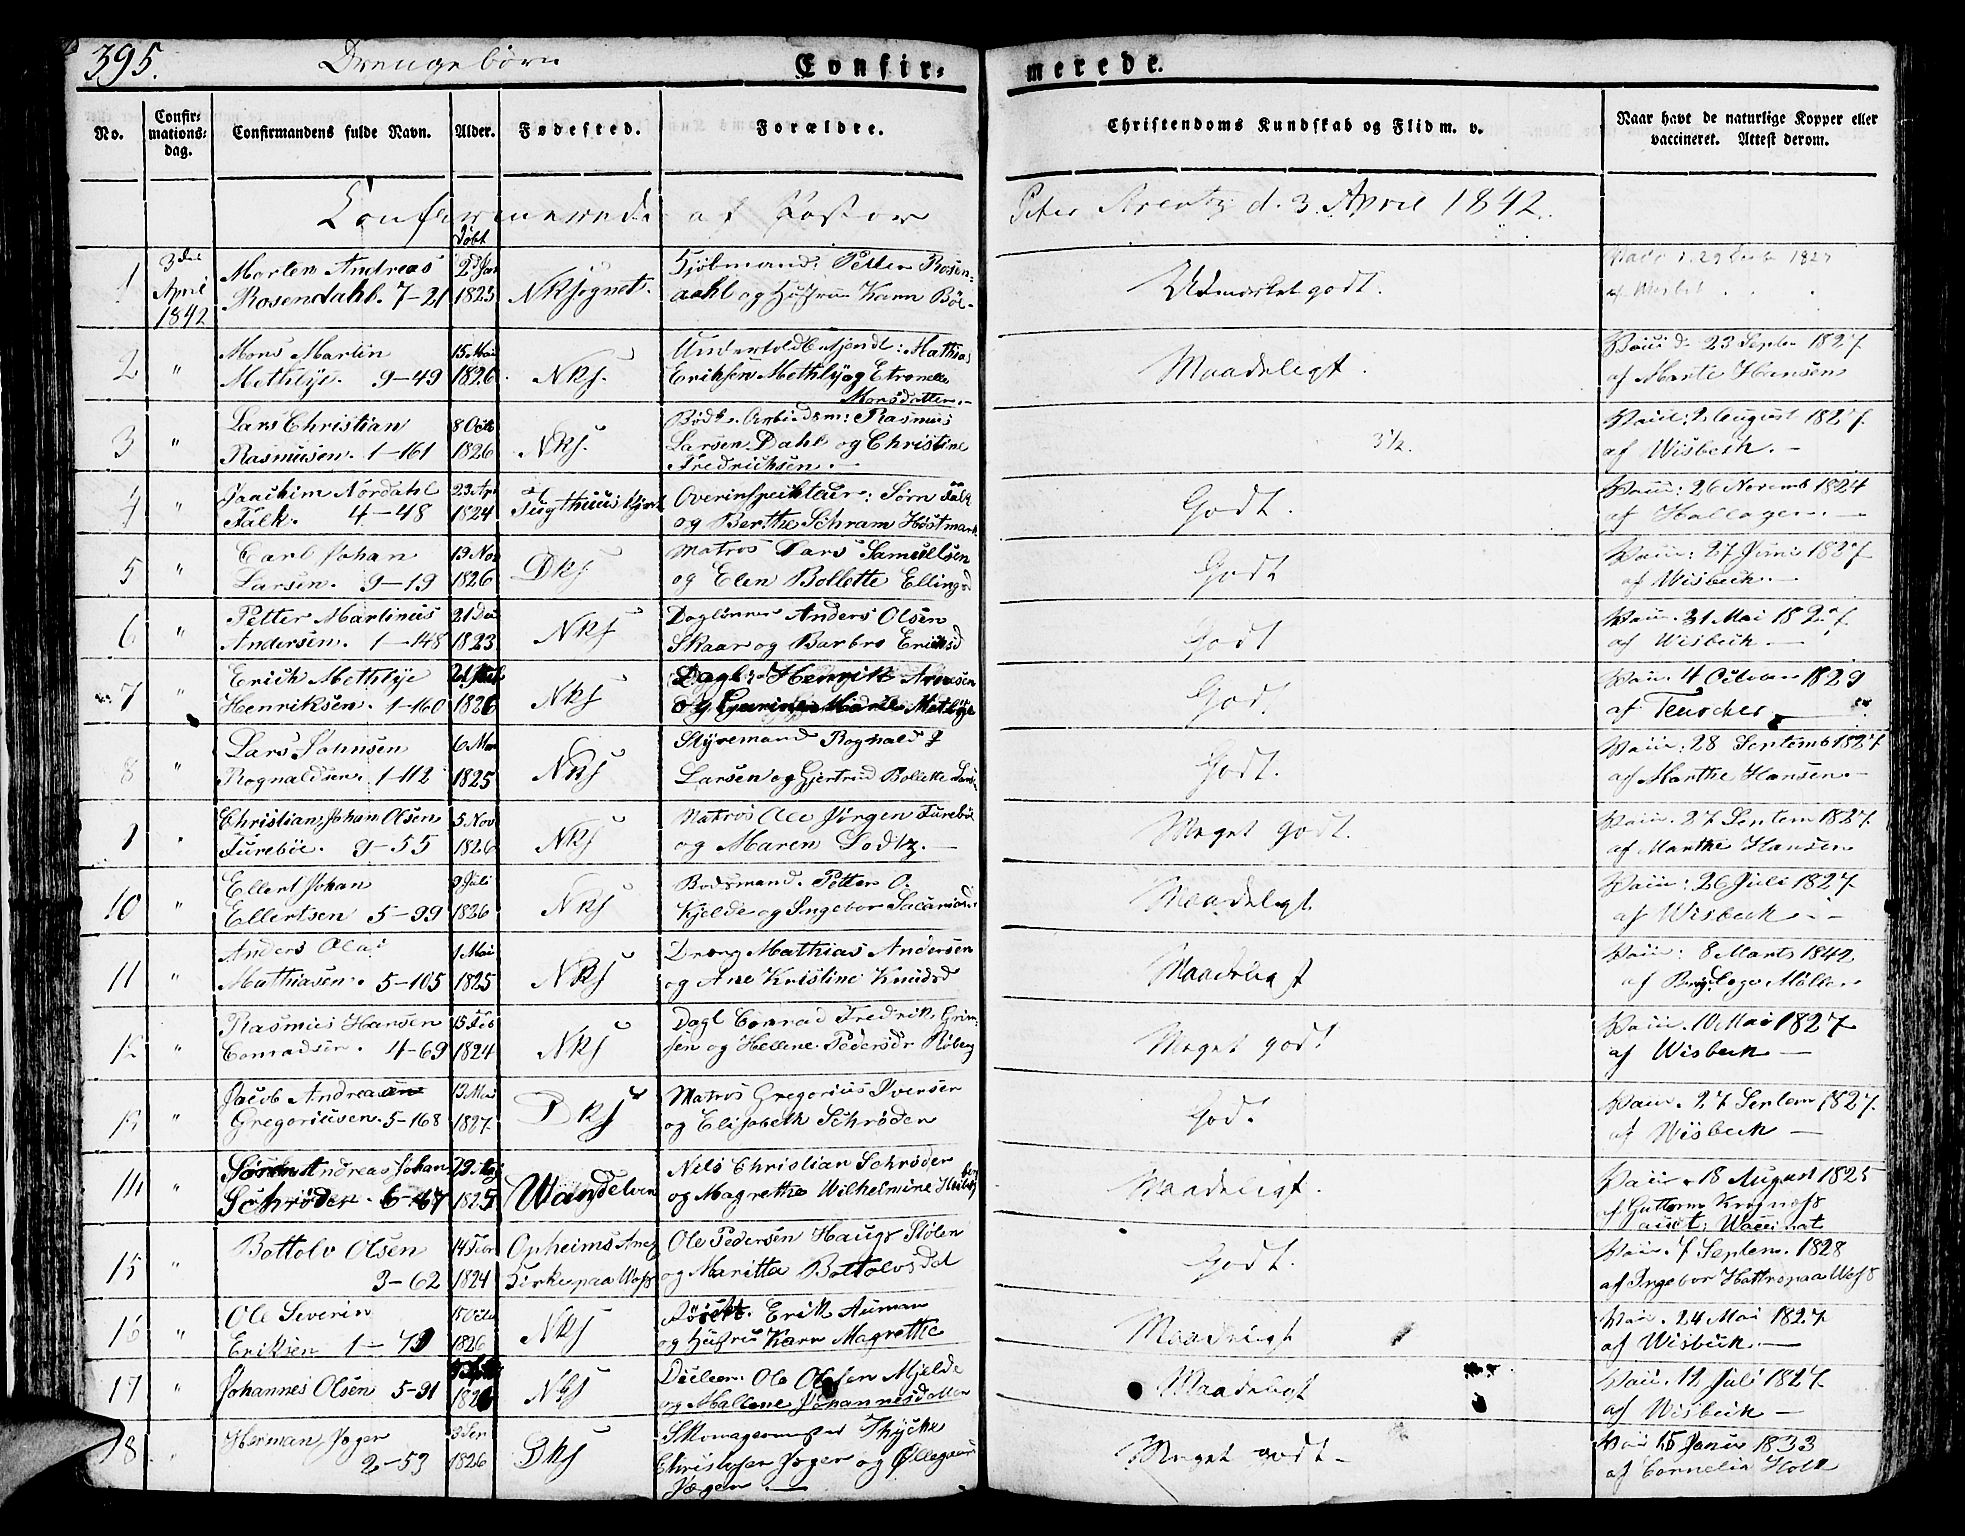 395. Drengebørn Confirmerede.
No. Confirmationsdag. Confirmandens fulde Navn. Alder. Fødested. Forældre. Christendoms Kundskab og Flid m. v. Naar havt de naturlige Kopper eller vaccineret. Attest derom.
Confirmerede af Pastor Peter Arentz d. 3 April 1842.
Døbt
1 3die April 1842 Morten Andreas Rosendahl. 7-21 23 Jan 1825 NKsognet. Kjøbmand: Petter Rosendahl og Hustru Karn Bøe- Udmærket godt. af Wisbek
2 " Mons Martin Methlye. 9-49 15 Mai 1826. NKs. Undertoldbetjendt: Mathias Eriksen Methly og Etronelle Monsdatter.- Maadeligt. Vacci d. 23 Septbr 1827. af Marte Hansen
3 " Lars Christian Rasmusen. 1-161 8 Octb 1826 NKs. Bødk. Arbeidsm: Rasmus Larsen Dahl og Christine Fredrichsen.- 3½. Vacci: 2 August 1827. af Wisbech.-
4 " Jaachim Nordahl Falk. 4-48 23 Apr 1824 Tugthuus Overinspekteur: Sørn Falk og Berthe Schram Høstmark Godt. Vacci: 26 Novemb 1824 af Hallager.-
5 " Carl Johan Larsen. 9-19 13 Nov 1826 DKs Matros Lars Samuelsen og Elen Bollette Ellingsd Godt Vacci: 27 Juni 1827. af Wisbeck.-
6 " Petter Martinus Andersen. 1-148 21 De 1823 NKs Daglønner Anders Olsen Skaar og Barbro Eriksd Godt Vacci. 31 Mai 1827. af Wisbeck-
7 " Erich Methlye Henriksen. 1-160 1826 NKs Dagl: Henrik Arnesen og Marthe Methlye God. Vacci. 4 October 1829 af Teuscher
8 " Lars Johnsen Rognaldsen. 1-112 6 Mar 1825 NKs Styremand Rognald J Larsen og Gjertrud Bollette Lars Godt. Vacci: 28 Septemb 1827. af Marthe Hansen.-
9 " Christian Johan Olsen Turebøe. 9-55 5 Nov 1826 NKs Matros Ole Jørgen Turebø og Maren Lodtz.- Meget godt. Vacci. 27 Septem 1827. af Marthe Hansen
10 " Ellert Johan Ellertsen 5-99 9 Juli 1826 NKs Bodsmand. Petter O. Kjelde og Ingebor Sacariasd. Maadeligt Vacci: 26 Juli 1827. af Wisbeck.-
11 " Anders Olai Mathiasen. 5-105 1 Mai 1825 NKs Dræng Mathias Andersen og Ane Kristine Knudsd Maadeligt Vacci: 8 Marts 1842 af Møller
12 " Rasmus Hansen Conradsen. 4-69 15 Feb 1824 NKs Dagl Conrad Fredrik Grimsen og Hellene Pedersdr Røberg Meget godt Vacci. 10 Mai 1827. af Wisbeck-
13 " Jacob Andreas Gregoriusen. 5-168 13 Mai 1827. DKs Matros Gregorius Iversen og Elisabeth Schrøder God. Vacci. 27 Septem 1827. af Wisbeck-
14 " Søren Andreas Johan Schrøder. 6-67 1825 Wandelven Nels Christian Schrøder og Magrethe Wilhelmine Maadeligt. Vacci. 18 August 1825 af Guttorm Krognæss aut. Waccinat
15 " Bottolv Olsen 3-62 14 Febr 1824 Opheims Anex Kirke paa Woss Ole Pedersen Hauge Stølen og Maritta Bottolvsdat Godt. Vacci. 7 Septem. 1828 af Ingebor Hattre paa Woss
16 " Ole Severin Eriksen 1-79 15 Octb 1826 NKs Erik Auman og Hustru Karn Magrethe Maadeligt Vacci. 24 Mai 1827. af Wisbeck.-
17 " Johannes Olsen 5-91 1826 NKs Ole Olsen Mjelde og Mallene Johannesdatter Maadeligt Vacci. 12 Juli 1827. af Wisbeck-
18 " Herman Jæger 2-53 1826 DKs Skomagermester Thycke Christofer Jæger og Øllegaard Jæger- Meget godt- Vacci 15 Janu 1833 af Cornelia Holk